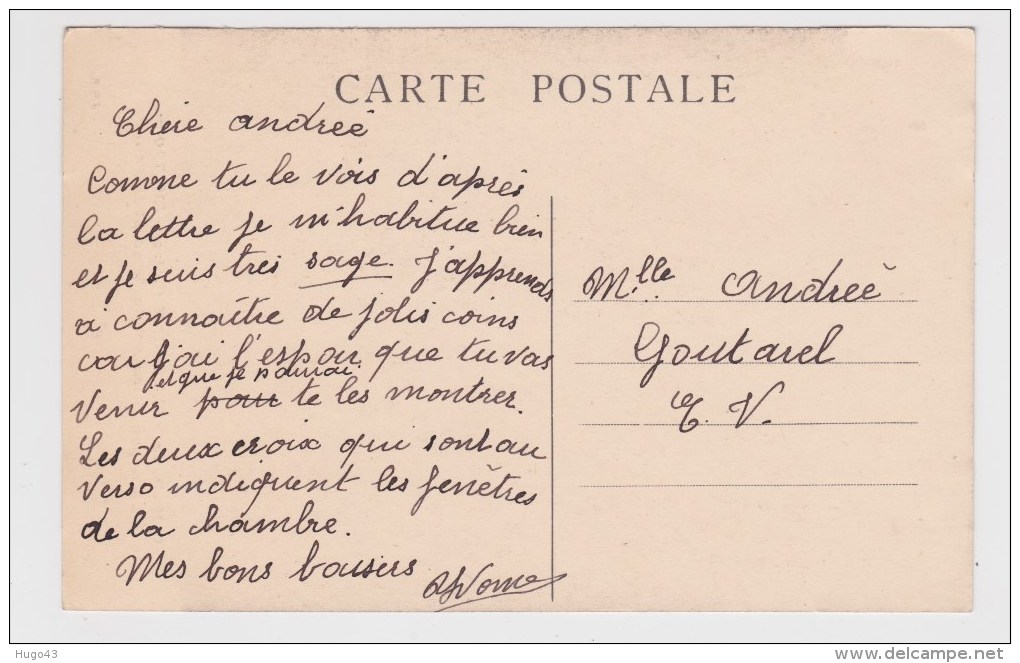 CARTE POSTALE
Chère andreé
Comme tu le vois d'après
la lettre je m'habitue bien
et je suis très sage. J'apprends
à connaître de jolis coins
car j'ai l'espoir que tu vas
et que je pourrai
venir pour te les montrer.
Les deux croix qui sont au
verso indiquent les fenêtres
de la chambre.
Mes bons baisers
Yvonne
Mlle andreé
Goutarel
E. V.
Hugo43
delcampe.net